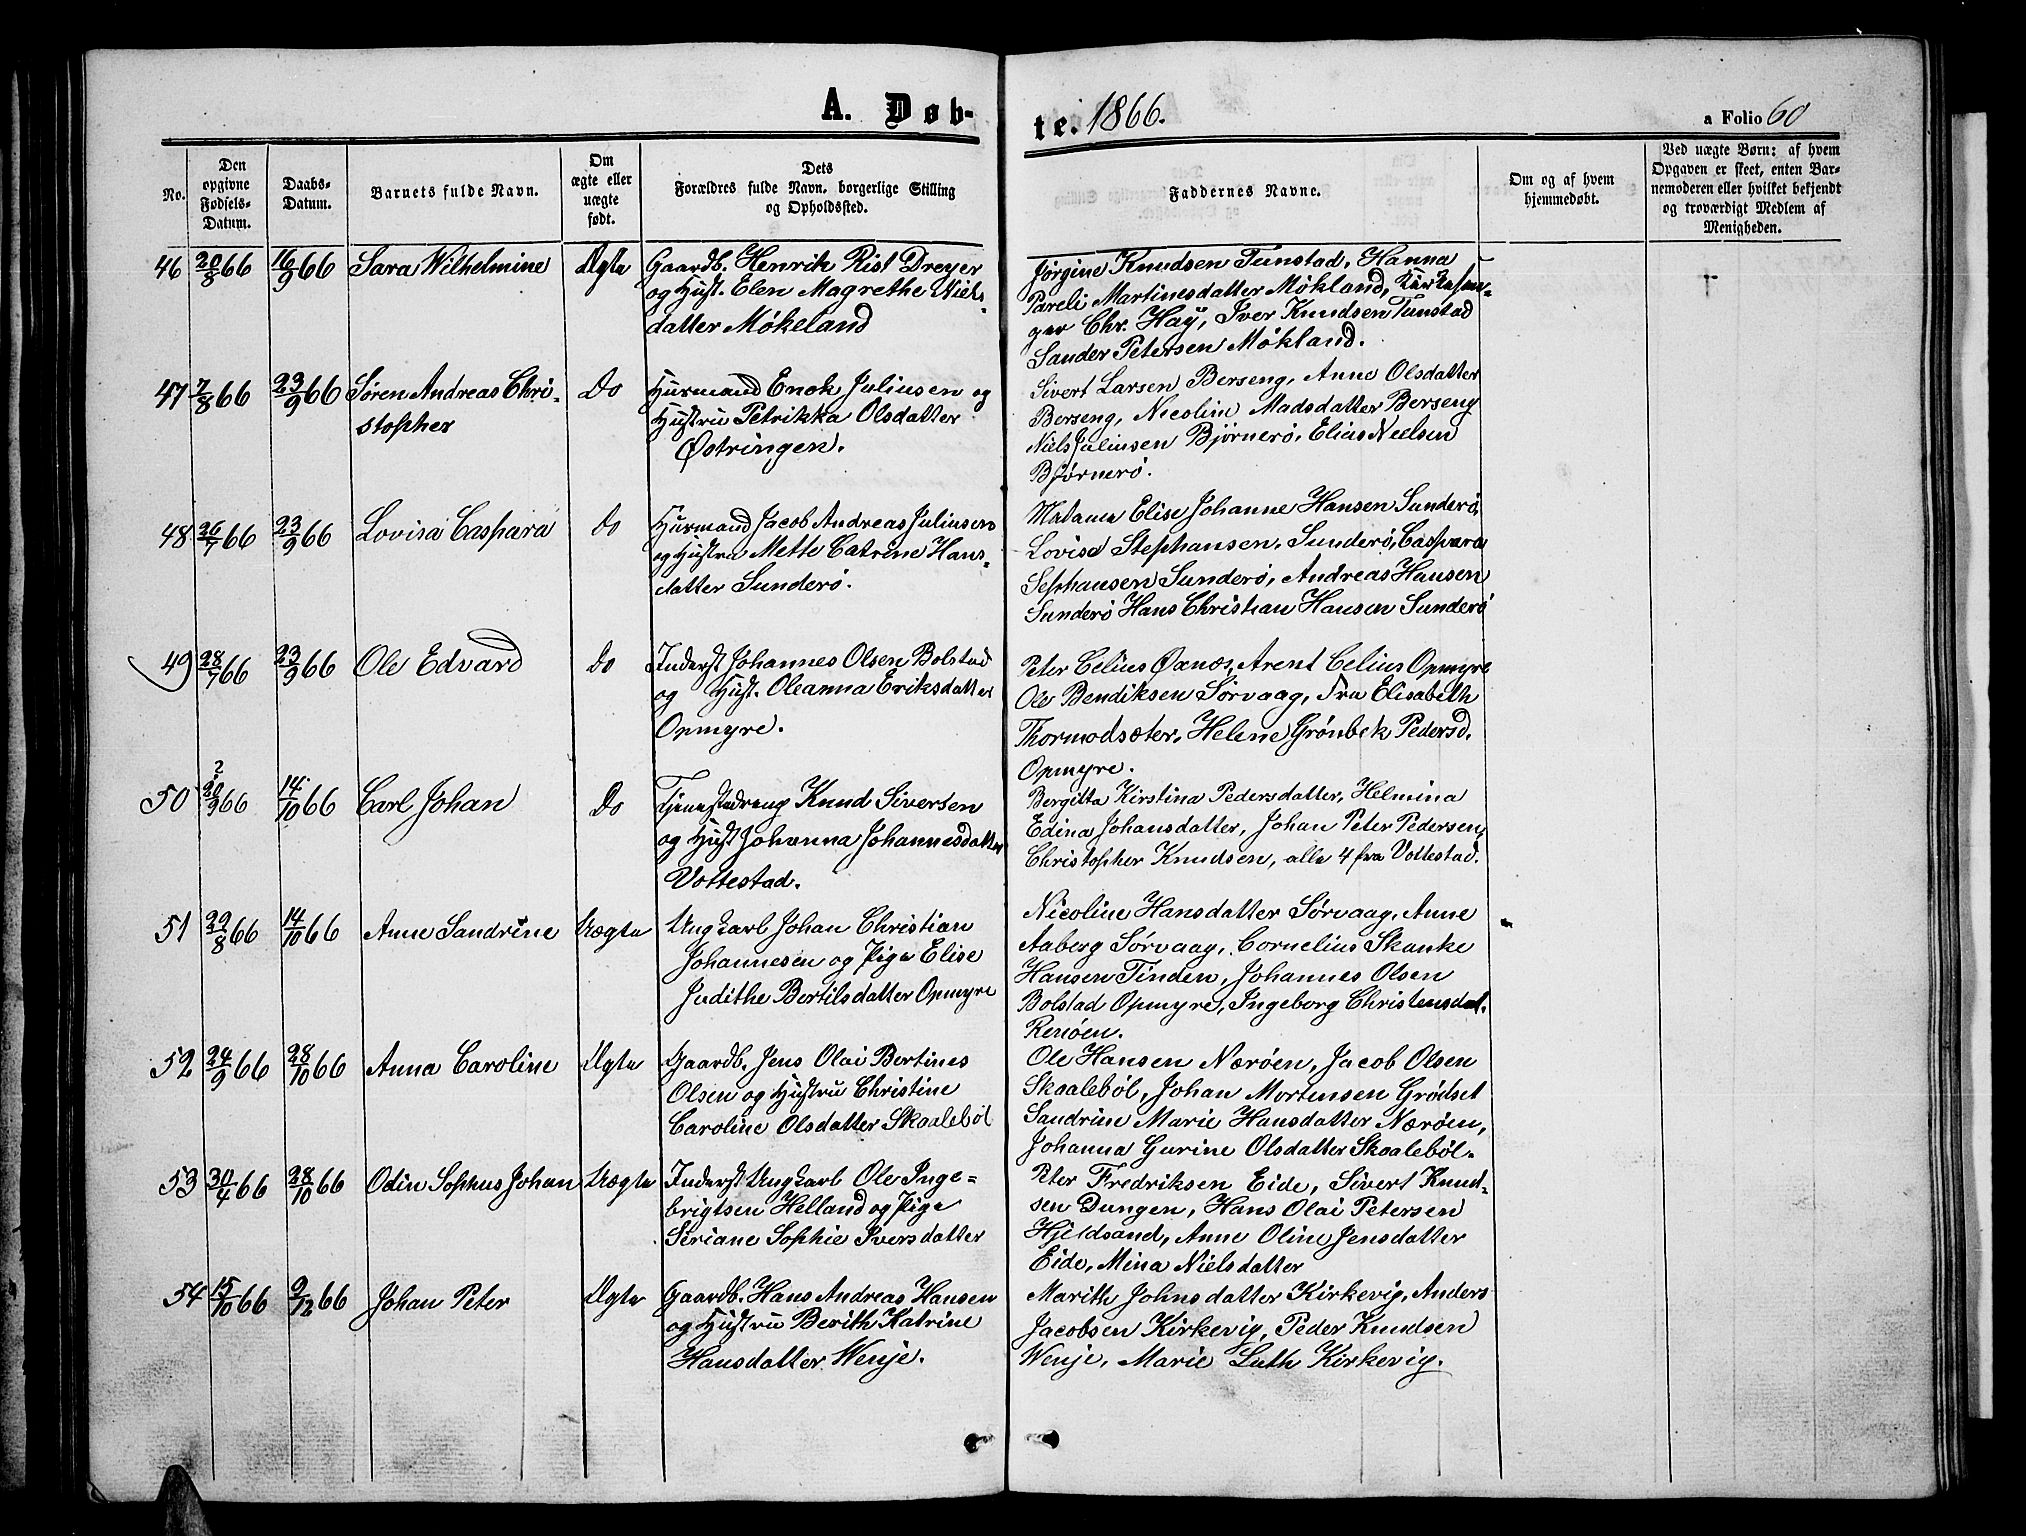 A. Døb-
te. 1866.
a Folio 60
No.
Den
opgivne
Fødsels-
Datum.
Daabs-
Datum.
Barnets fulde Navn.
Om
ægte eller
uægte
født.
Dets
Forældres fulde Navn, borgerlige Stilling
og Opholdssted.
Faddernes Navne.
Om og af hvem
hjemmedøbt.
Ved uægte Børn: af hvem
Opgaven er skeet, enten Bar-
nemoderen eller hvilket bekjendt
og troværdigt Medlem af
Menigheden.
46 20/8 66 16/9 66 Sara Wilhelmine Ægte
Gaardb. Henrik Rist Dreyer
og Hust. Elen Magrethe Niels-
datter Møkeland
Jørgine Knudsen Tunstad, Hanna
Pareli Martinesdatter Møkland,
Chr. Hay, Iver Knudsen Tunstad
Sander Petersen Møkland.
47 7/8 66 23/9 66 Søren Andreas Chri-
stopher
Do
Huusmand Enok Juliusen og
Hustru Petrikka Olsdatter
Østringen.
Sivert Larsen Berseng, Anne Olsdatter
Berseng, Nicolin Madsdatter Berseng
Niels Juliusen Bjørnerö, Elias Nielsen
Bjørnerö.
48 26/7 66 23/9 66 Lovisa Caspara Do
Huusmand Jacob Andreas Juliusen
og Hustru Mette Catrine Hans-
datter Sunderö.
Madama Elise Johanne Hansen Sunderö,
Lovisa Stephansen, Sunderö, Caspara
Sephansen Sunderö, Andreas Hansen
Sunderö Hans Christian Hansen Sunderö
49 28/7 66 23/9 66 Ole Edvard Do
Inderst Johannes Olsen Bolstad
og Hust. Oleanna Eriksdatter
Opmyre.
Peter Celius Øxnæs, Arent Celius Opmyre
Ole Bendiksen Sørvaag, Fru Elisabeth
Thormodsæter, Helene Grönbek Pedersd.
Opmyre.
50 2 20/9 66 14/10 66 Carl Johan Do
Tjenestedreng Knud Siversen
og Hust Johanna Johannesdatter
Vottestad.
Bergitta Kirstina Pedersdatter, Helmina
Edina Johansdatter, Johan Peter Pedersen,
Christopher Knudsen, alle 4 fra Vottestad.
51 22/8 66 14/10 66 Anne Sandrine Uægte
Ungkarl Johan Christian
Johannesen og Pige Elise
Judithe Bertilsdatter Opmyre
Nicoline Hansdatter Sørvaag, Anne
Aaberg Sørvaag, Cornelius Skanke
Hansen Tinden, Johannes Olsen
Bolstad Opmyre, Ingeborg Christensdat.
Renöen.
52 24/9 66 28/10 66 Anna Caroline Ægte
Gaardb. Jens Olai Bertines
Olsen og Hustru Christine
Caroline Olsdatter Skaaleböl
Ole Hansen Nærøen, Jacob Olsen
Skaaleböl, Johan Mortensen Grödset
Sandrine Marie Hansdatter Nærøen,
Johanna Gurine Olsdatter Skaaleböl.
53 30/4 66 28/10 66 Odin Sophus Johan Uægte
Inderst Ungkarl Ole Inge-
brigtsen Helland og Pige
Seriane Sophie Iversdatter
Peter Fredriksen Eide, Sivert Knud-
sen Dungen, Hans Olai Petersen
Hjeldsand, Anne Oline Jensdatter
Eide, Mina Nielsdatter
54 15/10 66 9/12 66 Johan Peter Ægte
Gaardb. Hans Andreas Hansen
og Hustru Berith Katrine
Hansdatter Wenje.
Marith Johnsdatter Kirkevig, Anders
Jacobsen Kirkevig, Peder Knudsen
Wenje, Marie Luth Kirkevig.